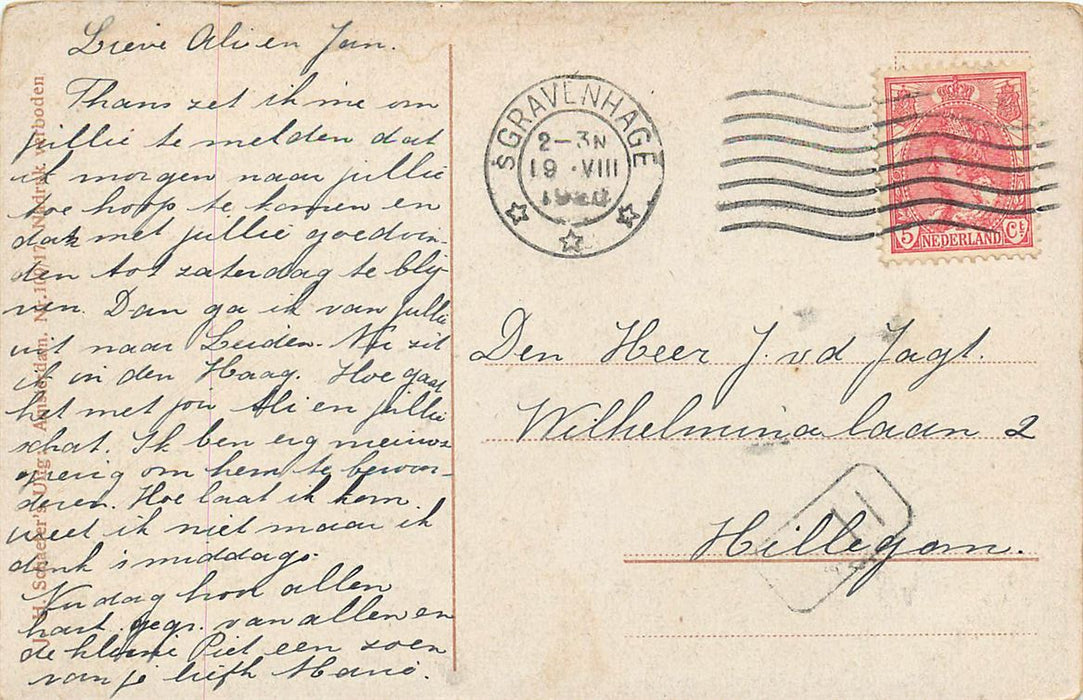 Lieve Ali en Jan.
Thans zet ik me om
jullie te melden dat
ik morgen naar jullie
toe hoop te komen en
dat met jullie goedvin-
den tot zaterdag te blij-
ven. Dan ga ik van jullie
uit naar Leiden. Nu zit
ik in den Haag. Hoe gaat
het met jou Ali en jullie
schat. Ik ben erg nieuws-
gierig om hem te bewon-
deren. Hoe laat ik kom
weet ik niet maar ik
denk 's middags.
Nu dag hoor allen
hart. gegr. van allen en
de kleine Piet een zoen
van je liefh Marie.
J. H. Schaefer's Uitg. Amsterdam. Nr. 10/17. Nadruk verboden
'SGRAVENHAGE
2-3N
19 .VIII
1920
5 NEDERLAND Ct
Den Heer J. v d Jagt.
Wilhelminalaan 2
Hillegom.
H